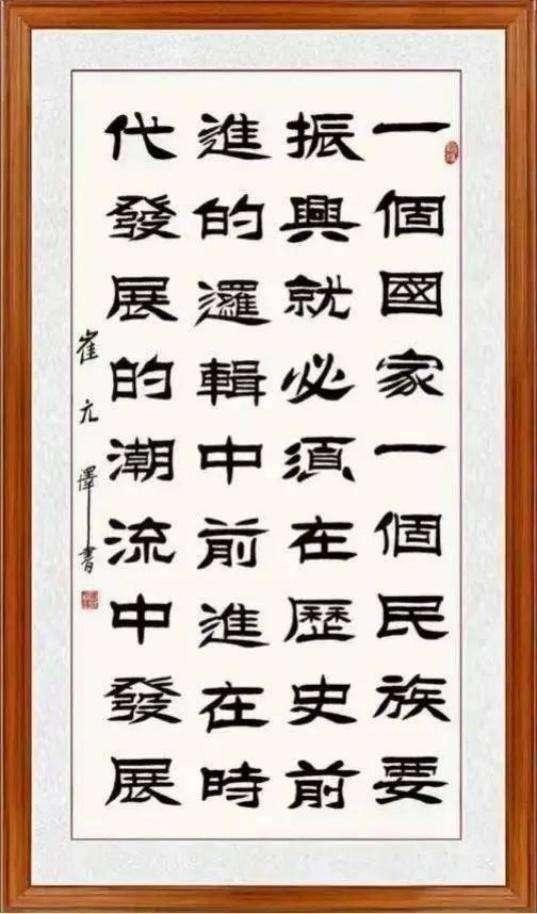 一個國家一個民族要
振興就必須在歷史前
進的邏輯中前進在時
代發展的潮流中發展
崔亢澤書